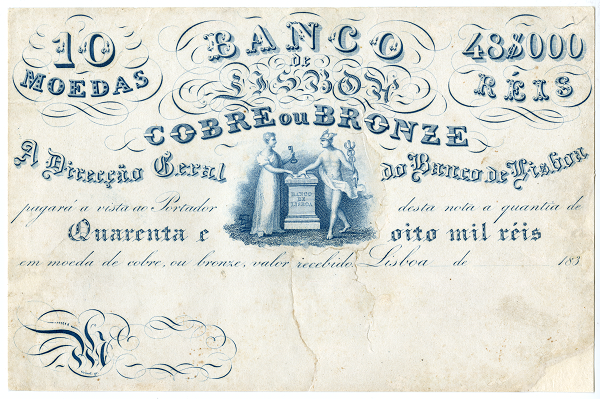 10 MOEDAS
BANCO
de
LISBOA
48$000
RÉIS
COBRE ou BRONZE
A Direcção Geral do Banco de Lisboa
BANCO
DE
LISBOA
pagará a vista ao Portador desta nota a quantia de
Quarenta e oito mil réis
em moeda de cobre, ou bronze, valor recebido. Lisboa de 183